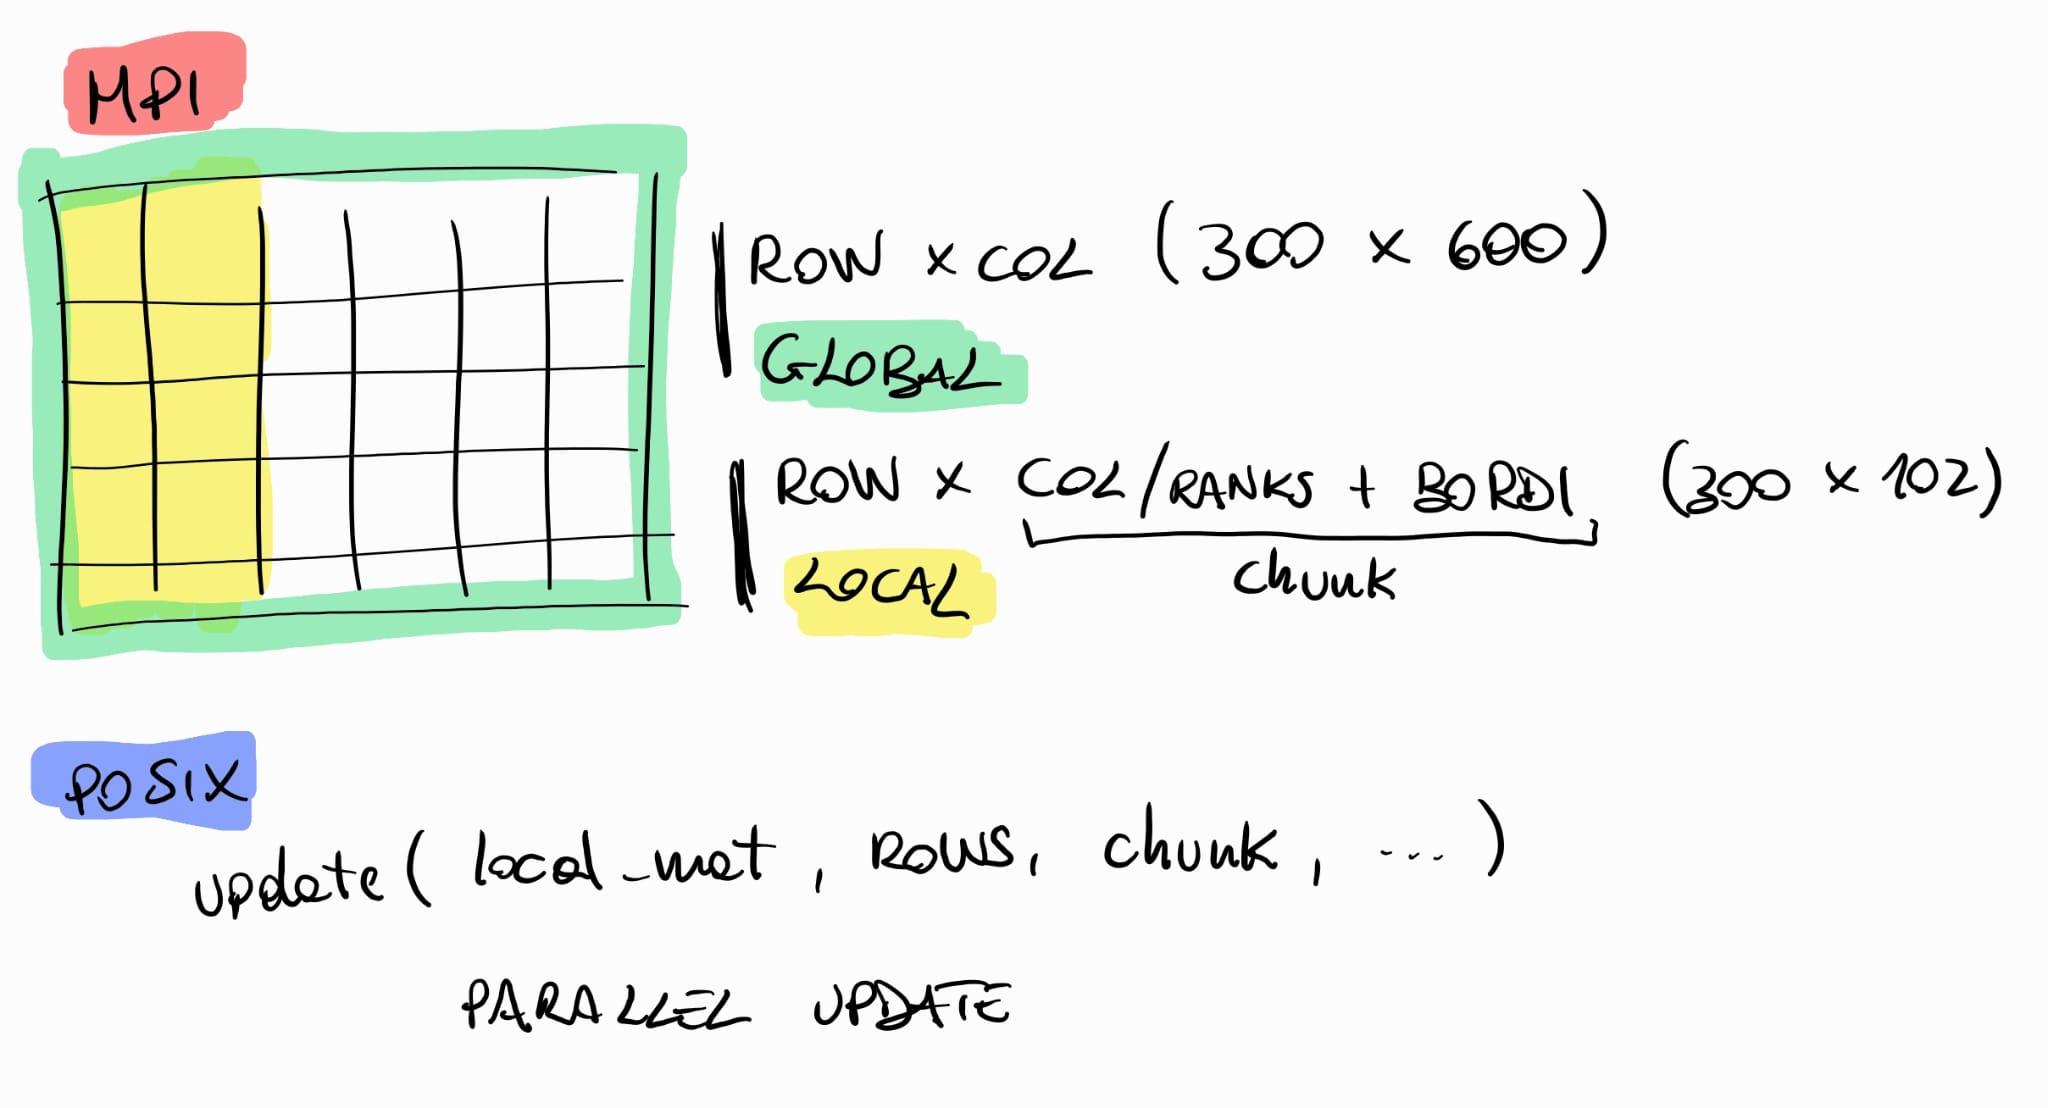 MPI
ROW x COL (300 x 600)
GLOBAL
ROW x COL/RANKS + BORDI (300 x 102)
chunk
LOCAL
POSIX
update( local_mat, ROWS, chunk, ... )
PARALLEL UPDATE